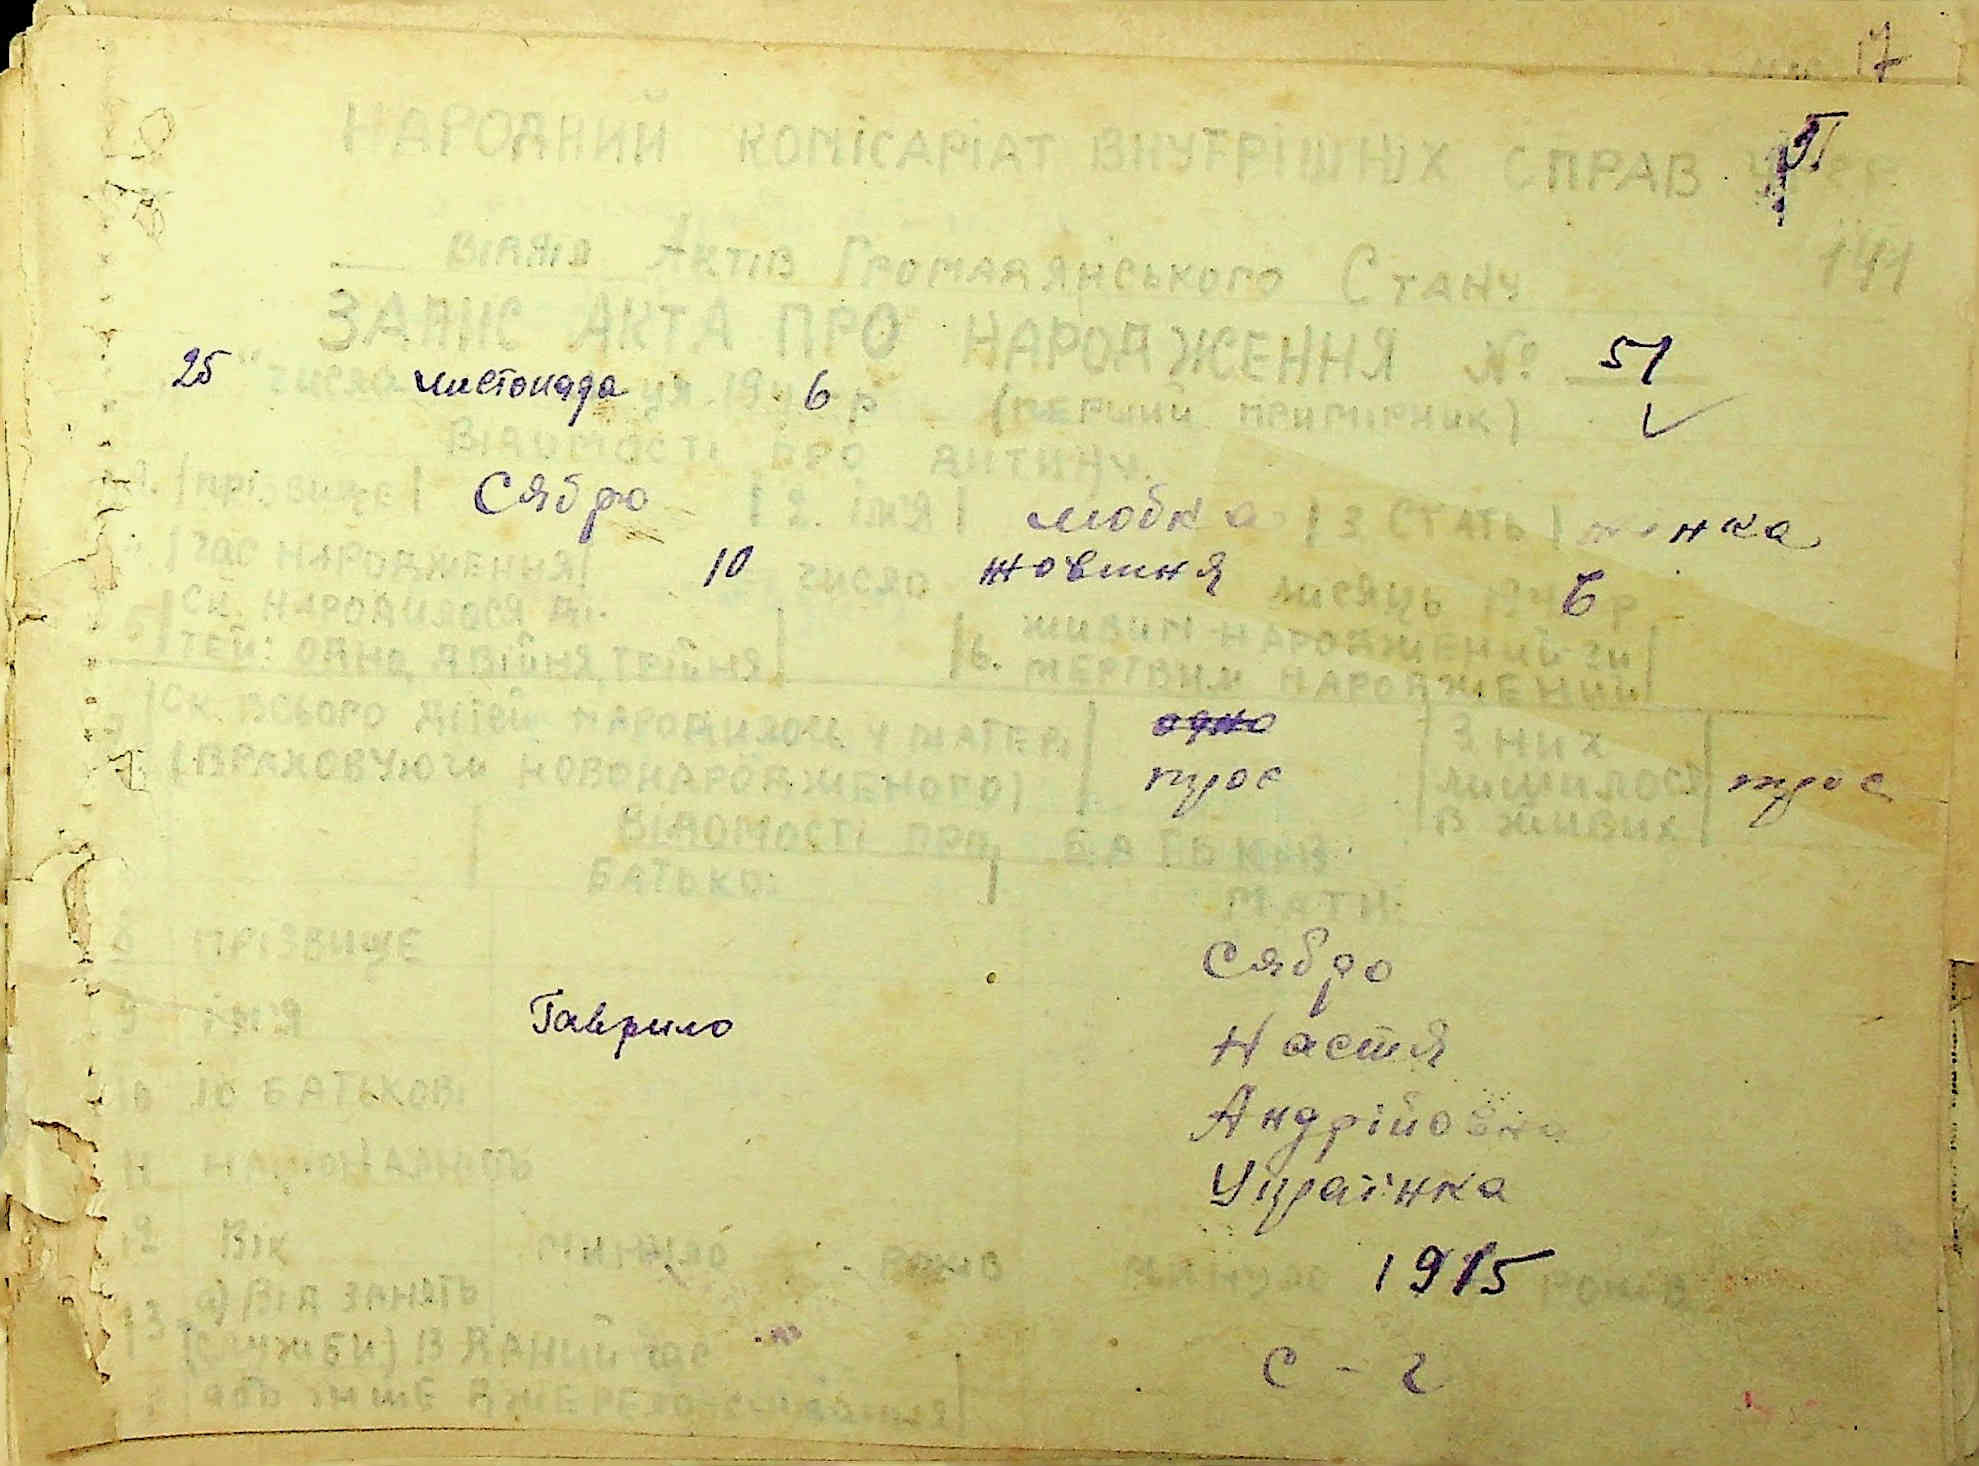 17
51
141
НАРОДНИЙ КОМІСАРІАТ ВНУТРІШНІХ СПРАВ УРСР
ВІДДІЛ АКТІВ ГРОМАДЯНСЬКОГО СТАНУ
ЗАПИС АКТА ПРО НАРОДЖЕННЯ № 51
25 числа листопада ця 194 6 р (ПЕРШИЙ ПРИМІРНИК)
ВІДОМОСТІ ПРО ДИТИНУ.
1. ПРІЗВИЩЕ Сябро 2. ІМ'Я Любка 3. СТАТЬ жінка
ЧАС НАРОДЖЕННЯ 10 число жовтня місяць 194 6 р
5 СК. НАРОДИЛОСЯ ДІ-
ТЕЙ: ОДНО, ДВІЙНЯ, ТРІЙНЯ 6. ЖИВИМ НАРОДЖЕНИЙ ЧИ
МЕРТВИМ НАРОДЖЕНИЙ
7 СК. ВСЬОГО ДІТЕЙ НАРОДИЛОСЬ У МАТЕРІ одно З НИХ
(ВРАХОВУЮЧИ НОВОНАРОДЖЕНОГО) троє ЛИШИЛОСЬ троє
В ЖИВИХ
ВІДОМОСТІ ПРО БАТЬКІВ
БАТЬКО: МАТИ:
8 ПРІЗВИЩЕ Сябро
9 ІМ'Я Гаврило Настя
10 ПО БАТЬКОВІ Андрійовна
11 НАЦІОНАЛЬНІСТЬ Українка
12 Вік минуло років минуло 1915 років
13 а) ВИД ЗАНЯТЬ
(СЛУЖБИ) В ДАНИЙ ЧАС с - г
АБО ІНШЕ ДЖЕРЕЛО